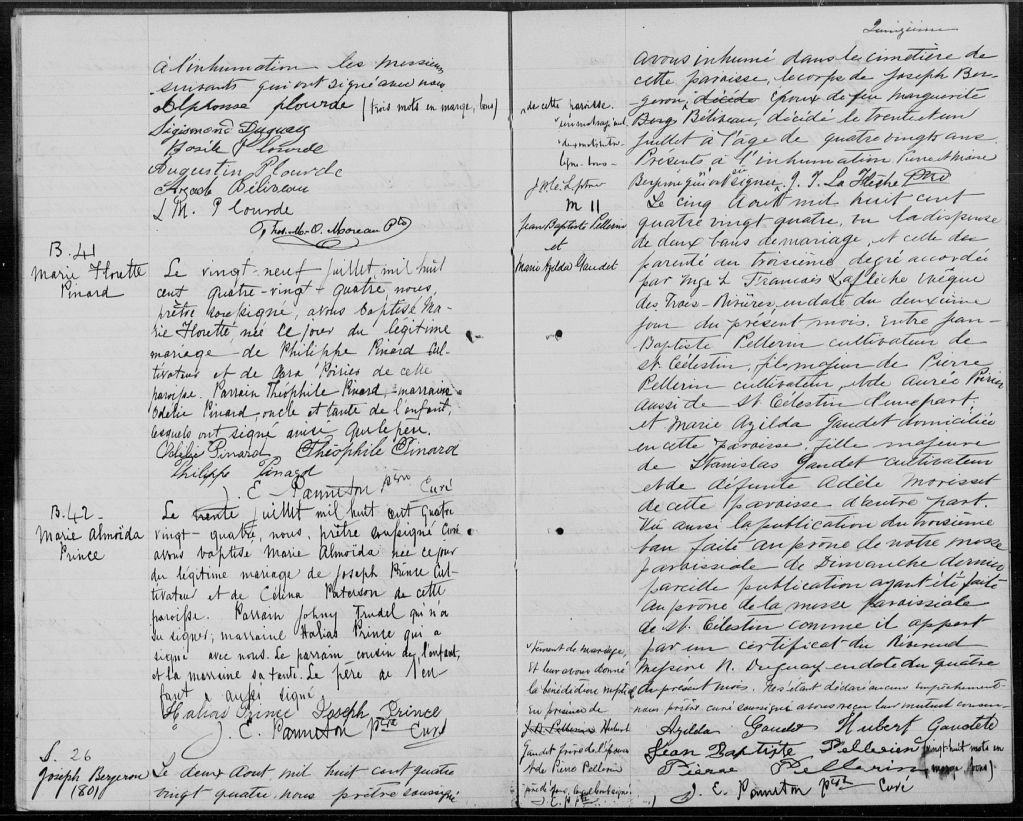 à l'inhumation les messieurs
suivants qui ont signé avec nous
Alphonse Plourde (trois mots en marge, bons)
Sigismond Duguay
Basile Plourde
Augustin Plourde
Arcade Béliveau
L M. Plourde
Ths. M. O. Moreau Ptre
B. 41
Marie Florette
Pinard
Le vingt-neuf juillet, mil huit
cent quatre-vingt-quatre nous,
prêtre soussigné, avons baptisé Ma-
rie Florette, née ce jour du légitime
mariage de Philippe Pinard Cul-
tivateur et de Poirier de cette
paroisse. Parrain Théophile Pinard, marraine
Odélie Pinard, oncle et tante de l'enfant,
lesquels ont signé ainsi que le père.
Odélie Pinard Théophile Pinard
Philippe Pinard
J. E. Panneton ptre Curé
B. 42 -
Marie Almoïda
Prince
Le trente juillet mil huit cent quatre
vingt-quatre, nous, prêtre soussigné Curé
avons baptisé Marie Almoïda née ce jour
du légitime mariage de Joseph Prince Cul-
tivateur et de Célina Paterson de cette
paroisse. Parrain Johny Trudel qui n'a
su signer; marraine Halias Prince qui a
signé avec nous. Le parrain cousin de l'enfant,
et la marraine sa tante. Le père de l'en
fant a aussi signé.
Halias Prince Joseph Prince
J. E. Panneton ptre Curé
S. 26
Joseph Bergeron
(80)
Le deux Aout mil huit cent quatre
vingt quatre, nous prêtre soussigné
Quinzième
avons inhumé dans le cimetière de
cette paroisse, le corps de Joseph Ber-
geron, décédé époux de feu Marguerite
Bergs Béliveau, décédé le trente et un
juillet à l'âge de quatre vingts ans.
Présents à l'inhumation Pierre et
qui ont signer. J. F. La Flèche Ptre
de cette paroisse.
ligne bons
M 11
Jean Baptiste Pellerin
et
Marie Azilda Gaudet
Le cinq Aout mil huit cent
quatre vingt quatre, vu la dispense
de deux bans de mariage, et celle de
parenté au troisième degré accordée
par Mgr L. François Laflèche évêque
des Trois-Rivières, en date du deuxième
jour du présent mois. Entre Jean-
Baptiste Pellerin cultivateur de
St. Célestin, fils majeur de Pierre
Pellerin cultivateur, et de Aurée Poirier
aussi de St Célestin d'une part;
et Marie Azilda Gaudet domiciliée
en cette paroisse fille majeure
de Stanislas Gaudet cultivateur
et de défunte Adèle Morisset
de cette paroisse d'autre part.
Vu aussi la publication du troisième
ban faite au prône de notre messe
paroissiale de Dimanche dernier
pareille publication ayant été faite
au prône de la messe paroissiale
de St. Célestin comme il appert
par un certificat du Révérend
Messire N. Duguay en date du quatre
du présent mois. Ne s'étant déclaré aucun empêchement
nous prêtre curé soussigné avons reçu leur mutuel consen-
tement de mariage,
et leur avons donné
la bénédiction nuptiale
en présence de
J. B. Pellerin Hubert
Gaudet frère de l'épouse
et de Pierre Pellerin
Azilda Gaudet Hubert Gaudette
Jean Baptiste Pellerin (vingt-huit mots en
Pierre Pellerin marge, bons)
J. E. Panneton ptre Curé